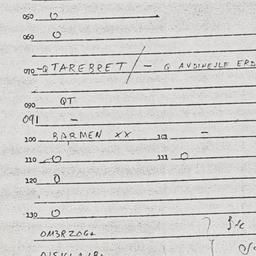 050 0
060 0
070 QTAREBRET / - G AVDINEJLE ERD
090 QT
091 -
100 BARMEN XX 101 -
110 0 111 0
120 0
130 0
OMBRZOGA